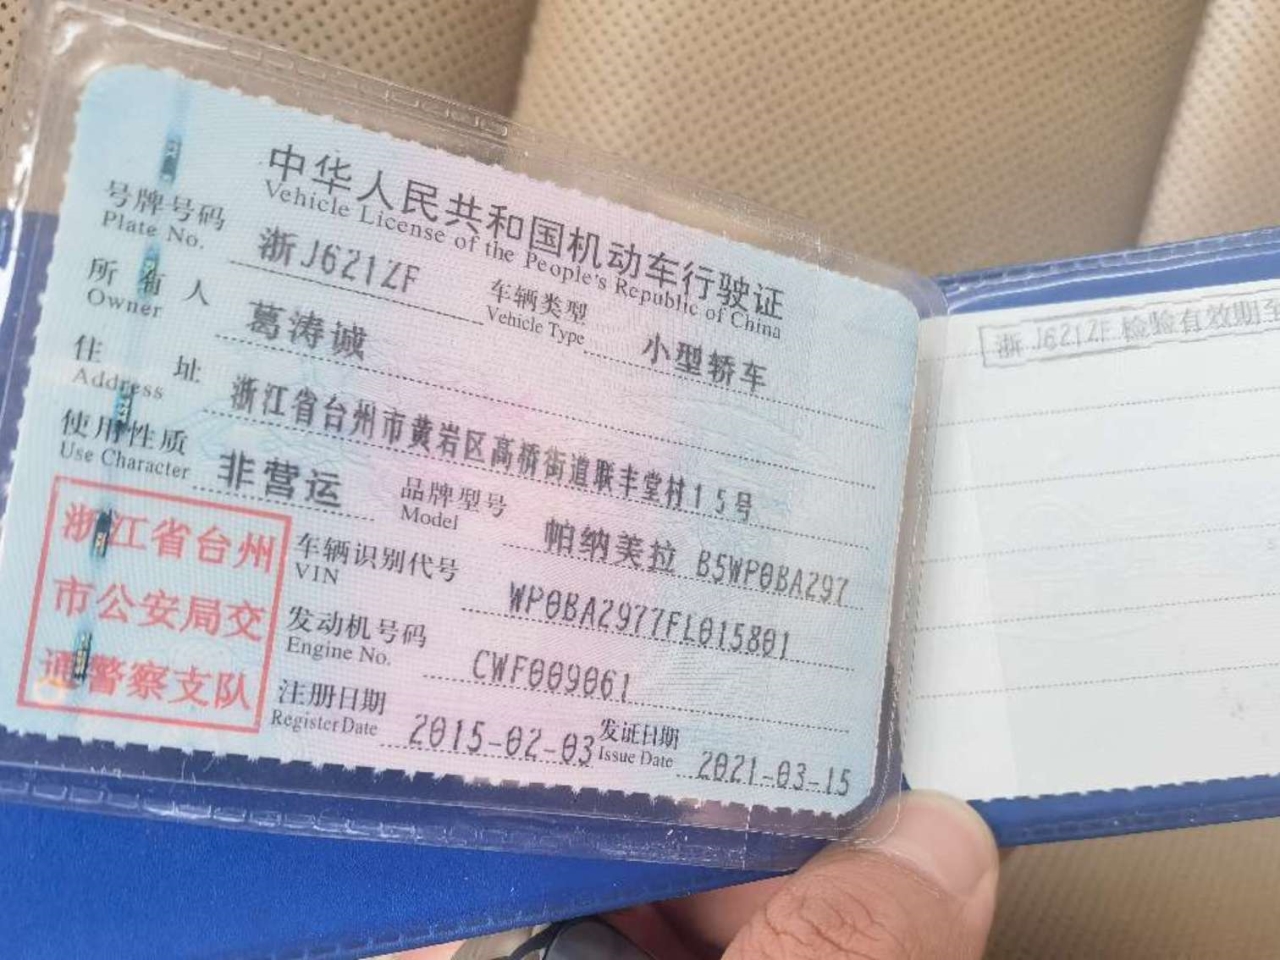 中华人民共和国机动车行驶证
Vehicle License of the People's Republic of China
号牌号码 浙J621ZF 车辆类型 小型轿车
Plate No. Vehicle Type
所有人 葛涛诚
Owner
住址 浙江省台州市黄岩区高桥街道联丰堂村15号
Address
使用性质 非营运 品牌型号 帕纳美拉 B5WP0BA297
Use Character Model
浙江省台州
市公安局交
通警察支队
车辆识别代号 WP0BA2977FL015801
VIN
发动机号码 CWF009061
Engine No.
注册日期 2015-02-03 发证日期 2021-03-15
Register Date Issue Date
浙J621ZF 检验有效期至